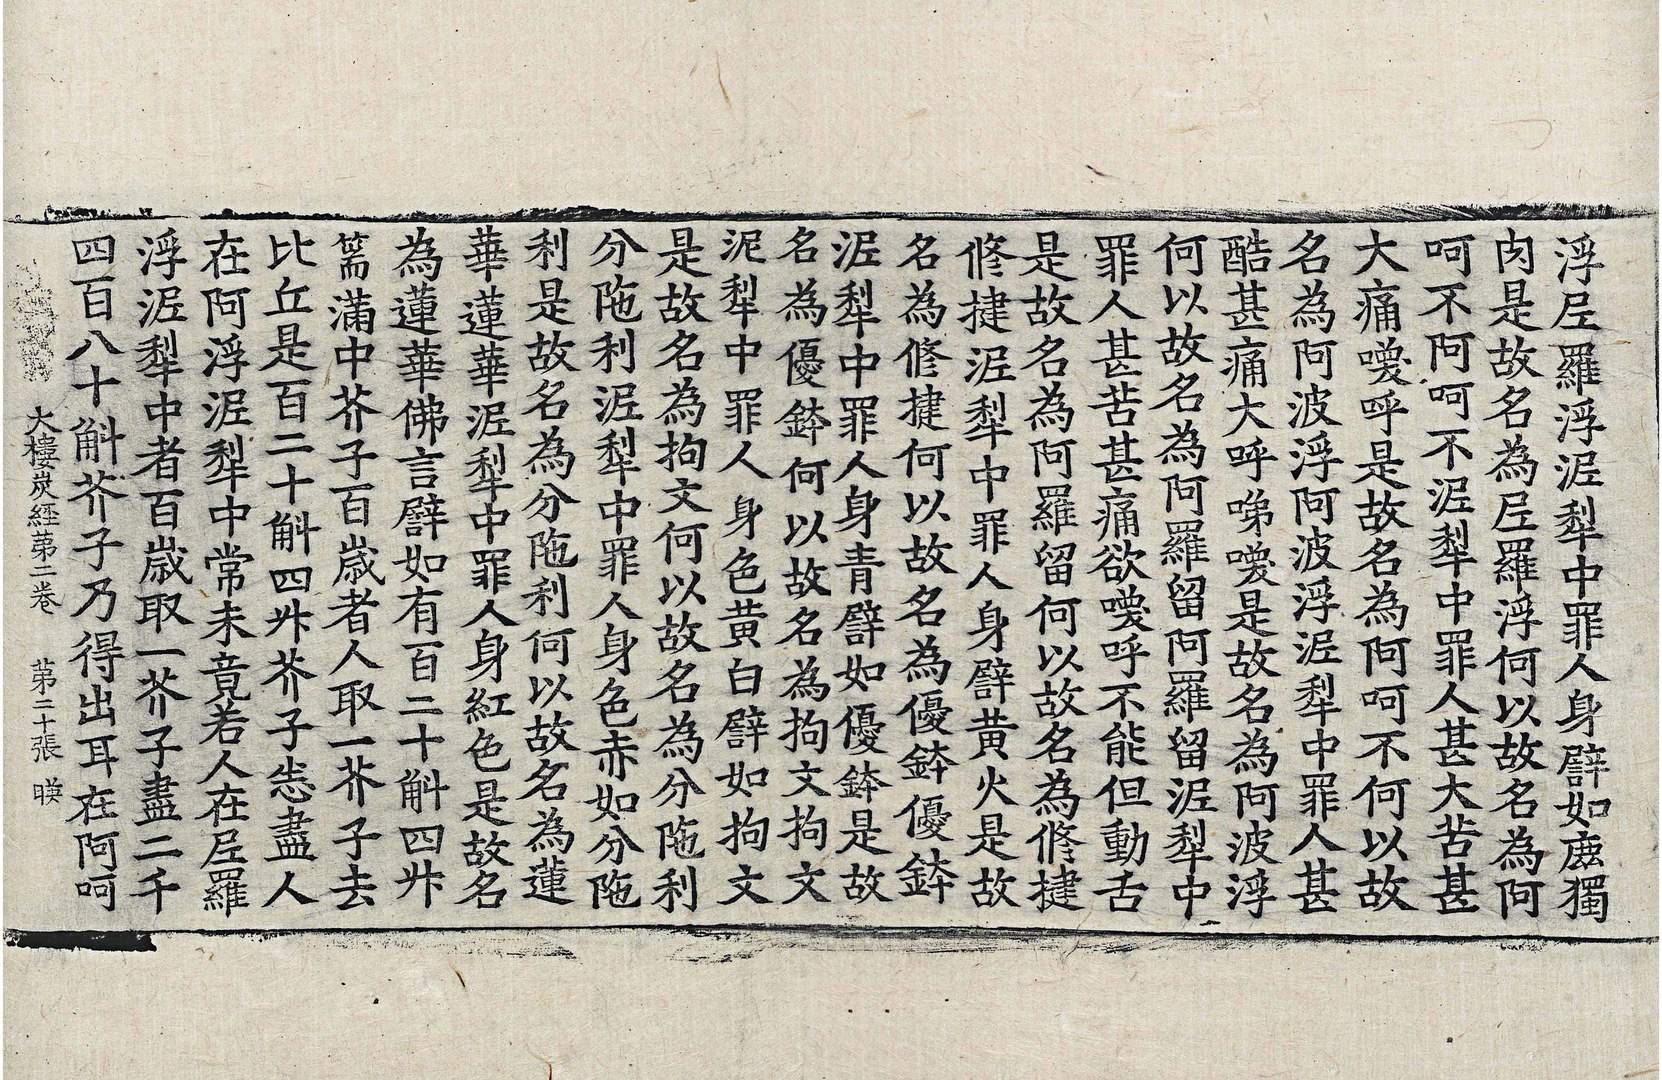 浮𡰱羅浮泥犁中罪人身譬如鹿獨
肉是故名為𡰱羅浮何以故名為阿
呵不阿呵不泥犁中罪人甚大苦甚
大痛噯呼是故名為阿呵不何以故
名為阿波浮阿波浮泥犁中罪人甚
酷甚痛大呼㖒噯是故名為阿波浮
何以故名為阿羅留阿羅留泥犁中
罪人甚苦甚痛欲噯呼不能但動舌
是故名為阿羅留何以故名為修揵
修揵泥犁中罪人身譬黃火是故
名為修揵何以故名為優鉢優鉢
泥犁中罪人身青譬如優鉢是故
名為優鉢何以故名為拘文拘文
泥犁中罪人身色黃白譬如拘文
是故名為拘文何以故名為分陁利
分陁利泥犁中罪人身色赤如分陁
利是故名為分陁利何以故名為蓮
華蓮華泥犁中罪人身紅色是故名
為蓮華佛言譬如有百二十斛四升
篅滿中芥子百歲者人取一芥子去
比丘是百二十斛四升芥子悉盡人
在阿浮泥犁中常未竟若人在𡰱羅
浮泥犁中者百歲取一芥子盡二千
四百八十斛芥子乃得出耳在阿呵
大樓炭經第二卷 第二十張 暎